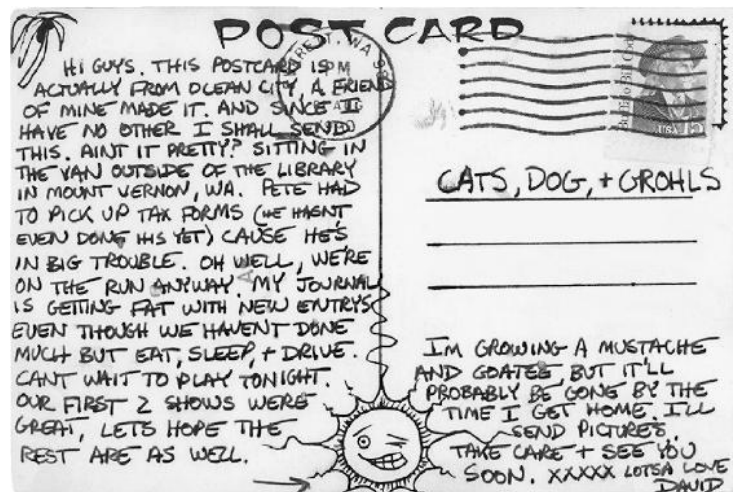 POST CARD
HI GUYS. THIS POSTCARD IS
ACTUALLY FROM OCEAN CITY, A FRIEND
OF MINE MADE IT. AND SINCE I
HAVE NO OTHER I SHALL SEND
THIS. AINT IT PRETTY? SITTING IN
THE VAN OUTSIDE OF THE LIBRARY
IN MOUNT VERNON, WA. PETE HAD
TO PICK UP TAX FORMS (HE HASNT
EVEN DONE HIS YET) CAUSE HE'S
IN BIG TROUBLE. OH WELL, WE'RE
ON THE RUN ANYWAY. MY JOURNAL
IS GETTING FAT WITH NEW ENTRYS
EVEN THOUGH WE HAVENT DONE
MUCH BUT EAT, SLEEP, + DRIVE.
CANT WAIT TO PLAY TONIGHT.
OUR FIRST 2 SHOWS WERE
GREAT, LETS HOPE THE
REST ARE AS WELL.
WA
PM
Buffalo Bill Cody
CATS, DOG, + GROHLS
IM GROWING A MUSTACHE
AND GOATEE, BUT IT'LL
PROBABLY BE GONE BY THE
TIME I GET HOME. I'LL
SEND PICTURES.
TAKE CARE + SEE YOU
SOON. XXXXX LOTSA LOVE
DAVID